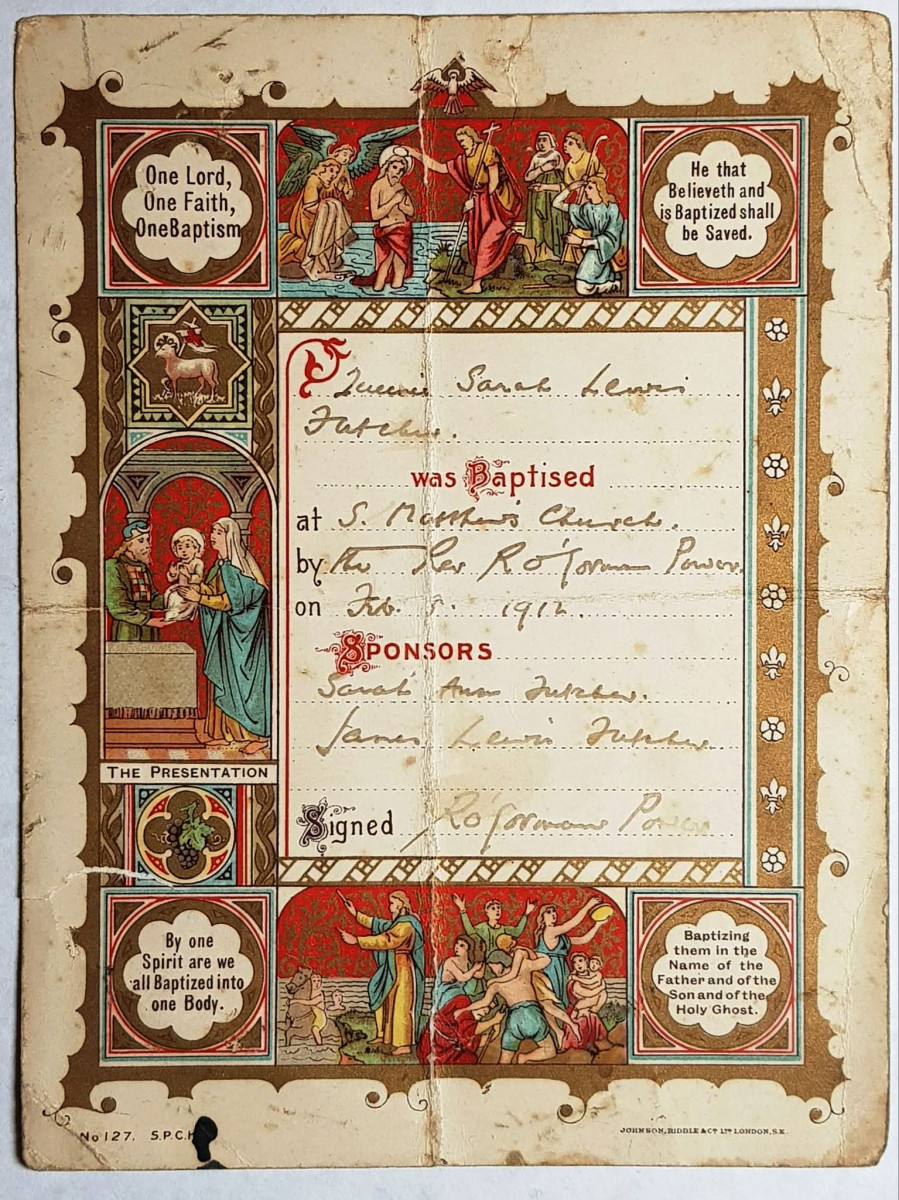 One Lord,
One Faith,
One Baptism
He that
Believeth and
is Baptized shall
be Saved.
Sarah Lewis
Futcher.
was Baptised
at S. Matthew's Church.
by the Rev R O'Gorman Power.
on Feb. 1912.
SPONSORS
Sarah Ann Futcher.
James Lewis Futcher
THE PRESENTATION
Signed R O'Gorman Power
By one
Spirit are we
all Baptized into
one Body.
Baptizing
them in the
Name of the
Father and of the
Son and of the
Holy Ghost.
No 127. S.P.C.K
JOHNSON, RIDDLE & Co LTD LONDON, S.E.